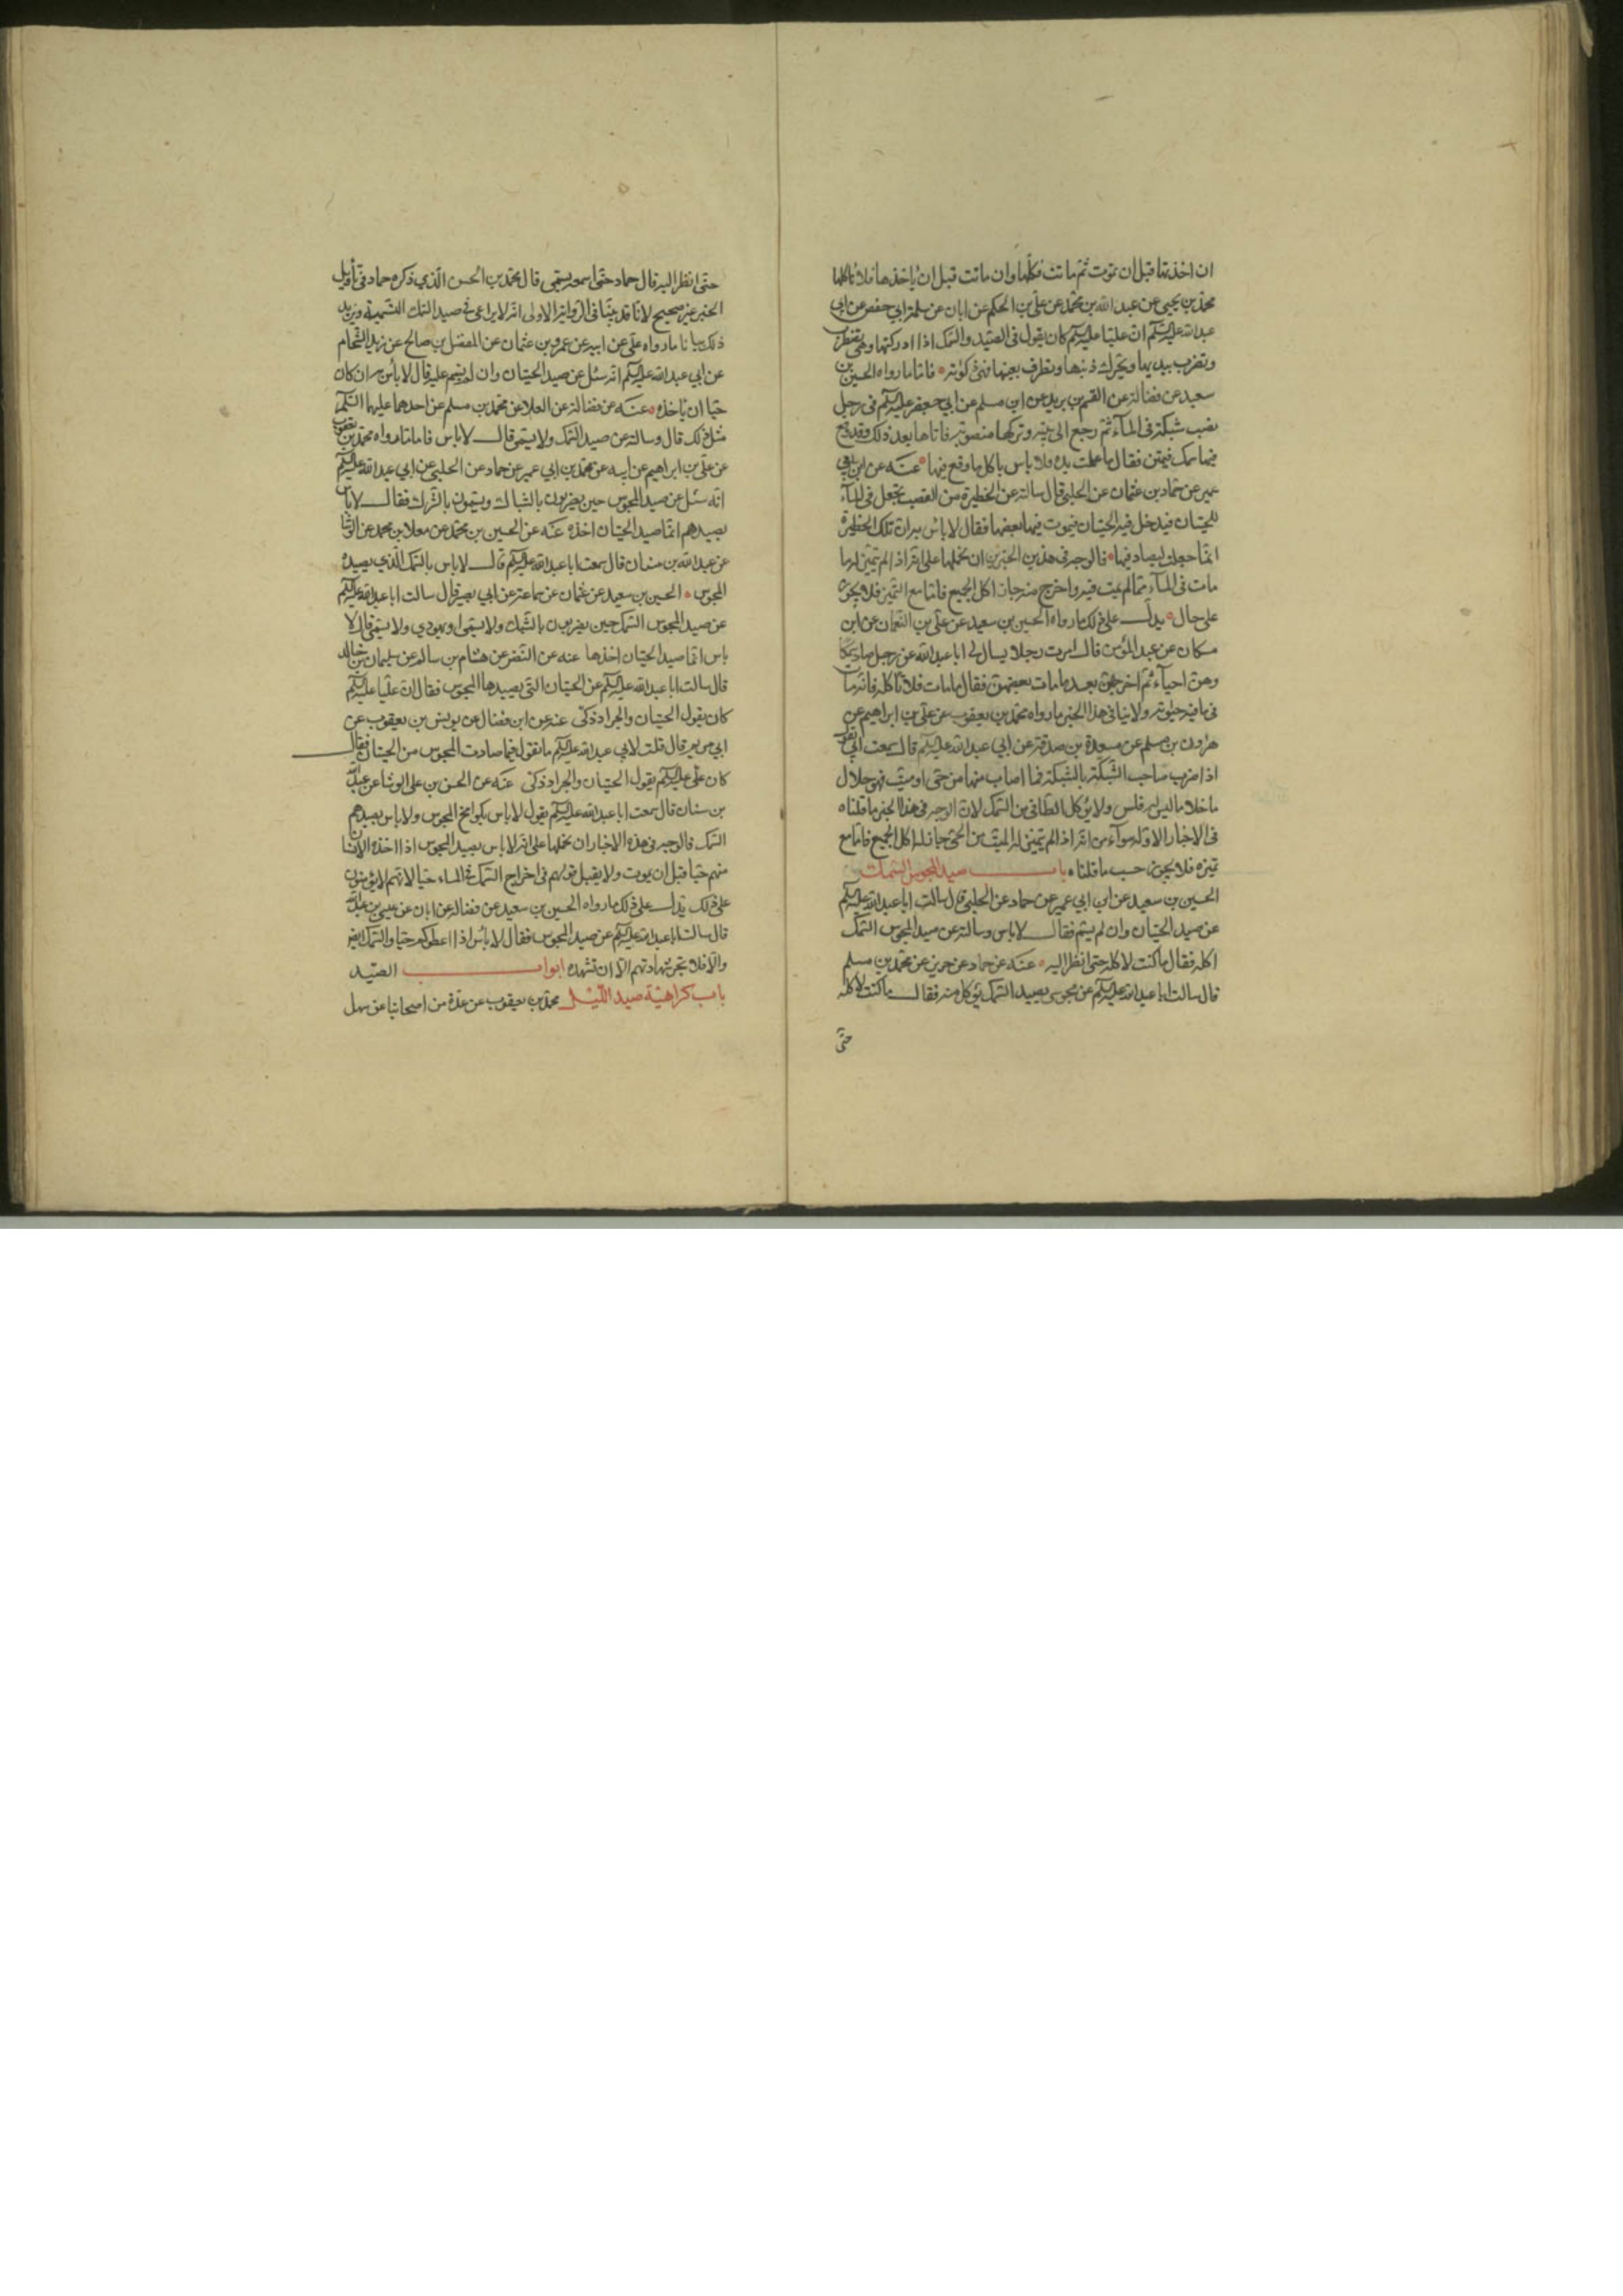 ان اخذتها قبل ان تموت ثم ماتت فكلها وان ماتت قبل ان تأخذها فلا تأكلها
محمد بن يحيى عن عبد الله بن محمد عن علي بن الحكم عن ابان عن سلمة ابي حفص عن ابي
عبد الله عليه السلم ان عليا عليه السلم كان يقول فى الصيد والسمك اذا ادركتها وهي تضطرب
وتضرب بيديها ويتحرك ذنبها وتطرف بعينها فهى ذكوته فاما ما رواه الحسين بن
سعيد عن فضالة عن القسم بن بريد عن ابن مسلم عن ابي جعفر عليه السلم فى رجل
نصب شبكة فى المآء ثم رجع الى بيته وتركها منصوبة فاتاها بعد ذلك وقد وقع
فيها سمك فيمتن فقال ما عملت يده فلا باس باكل ما وقع فيها عنه عن ابن ابي
عمير عن حماد بن عثمان عن الحلبي قال سالته عن الحظيرة من القصب تجعل فى المآء
للحيتان فيدخل فيه الحيتان فيموت فيها بعضها فقال لا باس به ان تلك الحظيرة
انما جعلت ليصاد فيها فالوجه فى هذين الخبرين ان نحملها على انه اذا لم تتميز له ما
مات فى المآء مما لم يمت فيه واخرج منه جاز اكل الجميع فاما مع التميز فلا يجوز
على حال يدل على ذلك ما رواه الحسين بن سعيد عن علي بن النعمان عن ابن
مسكان عن عبد المؤمن قال امرت رجلا يسال لى ابا عبد الله عن رجل صاد سمكا
وهن احياء ثم اخرجهن بعد ما مات بعضهن فقال ما مات فلا تاكله فانه مات
فى ما فيه حيوته ولا ينافى هذا الخبر ما رواه محمد بن يعقوب عن علي بن ابراهيم عن
هرون بن مسلم عن مسعدة بن صدقة عن ابي عبد الله عليه السلم قال سمعت ابي يقول
اذا ضرب صاحب الشبكة بالشبكة فما اصاب منها من حى او ميت فهو حلال
ما خلا ما ليس له فلس ولا يؤكل الطافي من السمك لان الوجه فى هذا الخبر ما قلناه
فى الاخبار الاولة سوآء من انه اذا لم يتميز له الميت من الحي جاز له اكل الجميع فاما مع
تميزه فلا يجوز حسب ما قلناه باب صيد المجوس السمك
الحسين بن سعيد عن ابن ابي عمير عن حماد عن الحلبي قال سالت ابا عبد الله عليه السلم
عن صيد الحيتان وان لم يسم فقال لا باس وسالته عن صيد المجوس السمك
اكله فقال ما كنت لاكله حتى انظر اليه عنه عن حماد عن حريز عن محمد بن مسلم
قال سالت ابا عبد الله عليه السلم عن مجوسى يصيد السمك يؤكل منه فقال ما كنت لاكله
حتى
حتى انظر اليه قال حماد حتى اسمعه يسمى قال محمد بن الحسن الذي ذكره حماد فى تأويل
الخبر غير صحيح لانا قد بينا فى الرواية الاولى انه لا يراعى فى صيد السمك التسمية ويزيد
ذلك بيانا ما رواه علي عن ابيه عن عمرو بن عثمان عن المفضل بن صالح عن زيد الشحام
عن ابي عبد الله عليه السلم انه سئل عن صيد الحيتان وان لم يسم عليه قال لا بأس به ان كان
حيا ان يأخذه عنه عن فضالة عن العلا عن محمد بن مسلم عن احدهما عليهما السلم
مثل ذلك قال وسالته عن صيد السمك ولا يسمى قال لا باس فاما ما رواه محمد بن يعقوب
عن علي بن ابراهيم عن ابيه عن محمد بن ابي عمير عن حماد عن الحلبي عن ابي عبد الله عليه السلم
انه سئل عن صيد المجوس حين يضربون بالشباك ويسمون بالشرك فقال لا باس
بصيدهم انما صيد الحيتان اخذه عنه عن الحسين بن محمد عن معلا بن محمد عن الوشا
عن عبد الله بن سنان قال سمعت ابا عبد الله عليه السلم قال لا باس بالسمك الذي يصيده
المجوس الحسين بن سعيد عن عثمان عن سماعة عن ابي بصير قال سالت ابا عبد الله عليه السلم
عن صيد المجوس السمك حين يضربون بالشبك ولا يسمى او يهودي ولا يسمى قال لا
باس انما صيد الحيتان اخذها عنه عن النضر عن هشام بن سالم عن سليمان بن خالد
قال سالت ابا عبد الله عليه السلم عن الحيتان التى يصيدها المجوس فقال ان عليا عليه السلم
كان يقول الحيتان والجراد ذكى عنه عن ابن فضال عن يونس بن يعقوب عن
ابي مريم قال قلت لابي عبد الله عليه السلم ما تقول فيما صادت المجوس من الحيتان فقال
كان علي عليه السلم يقول الحيتان والجراد ذكى عنه عن الحسن بن على الوشا عن عبد الله
بن سنان قال سمعت ابا عبد الله عليه السلم يقول لا باس بكوامخ المجوس ولا باس بصيدهم
السمك فالوجه فى هذه الاخبار ان نحملها على انه لا باس بصيد المجوس اذا اخذه الانسان
منهم حيا قبل ان يموت ولا يقبل قولهم فى اخراج السمك من الماء حيا لانهم لا يؤمنون
على ذلك يدل على ذلك ما رواه الحسين بن سعيد عن فضالة عن ابان عن عيسى بن عبد الله
قال سالت ابا عبد الله عليه السلم عن صيد المجوس فقال لا بأس اذا اعطوكه حيا والسمك ايضا
والا فلا تجز شهادتهم الا ان تشهده ابواب الصيد
باب كراهية صيد الليل محمد بن يعقوب عن عدة من اصحابنا عن سهل